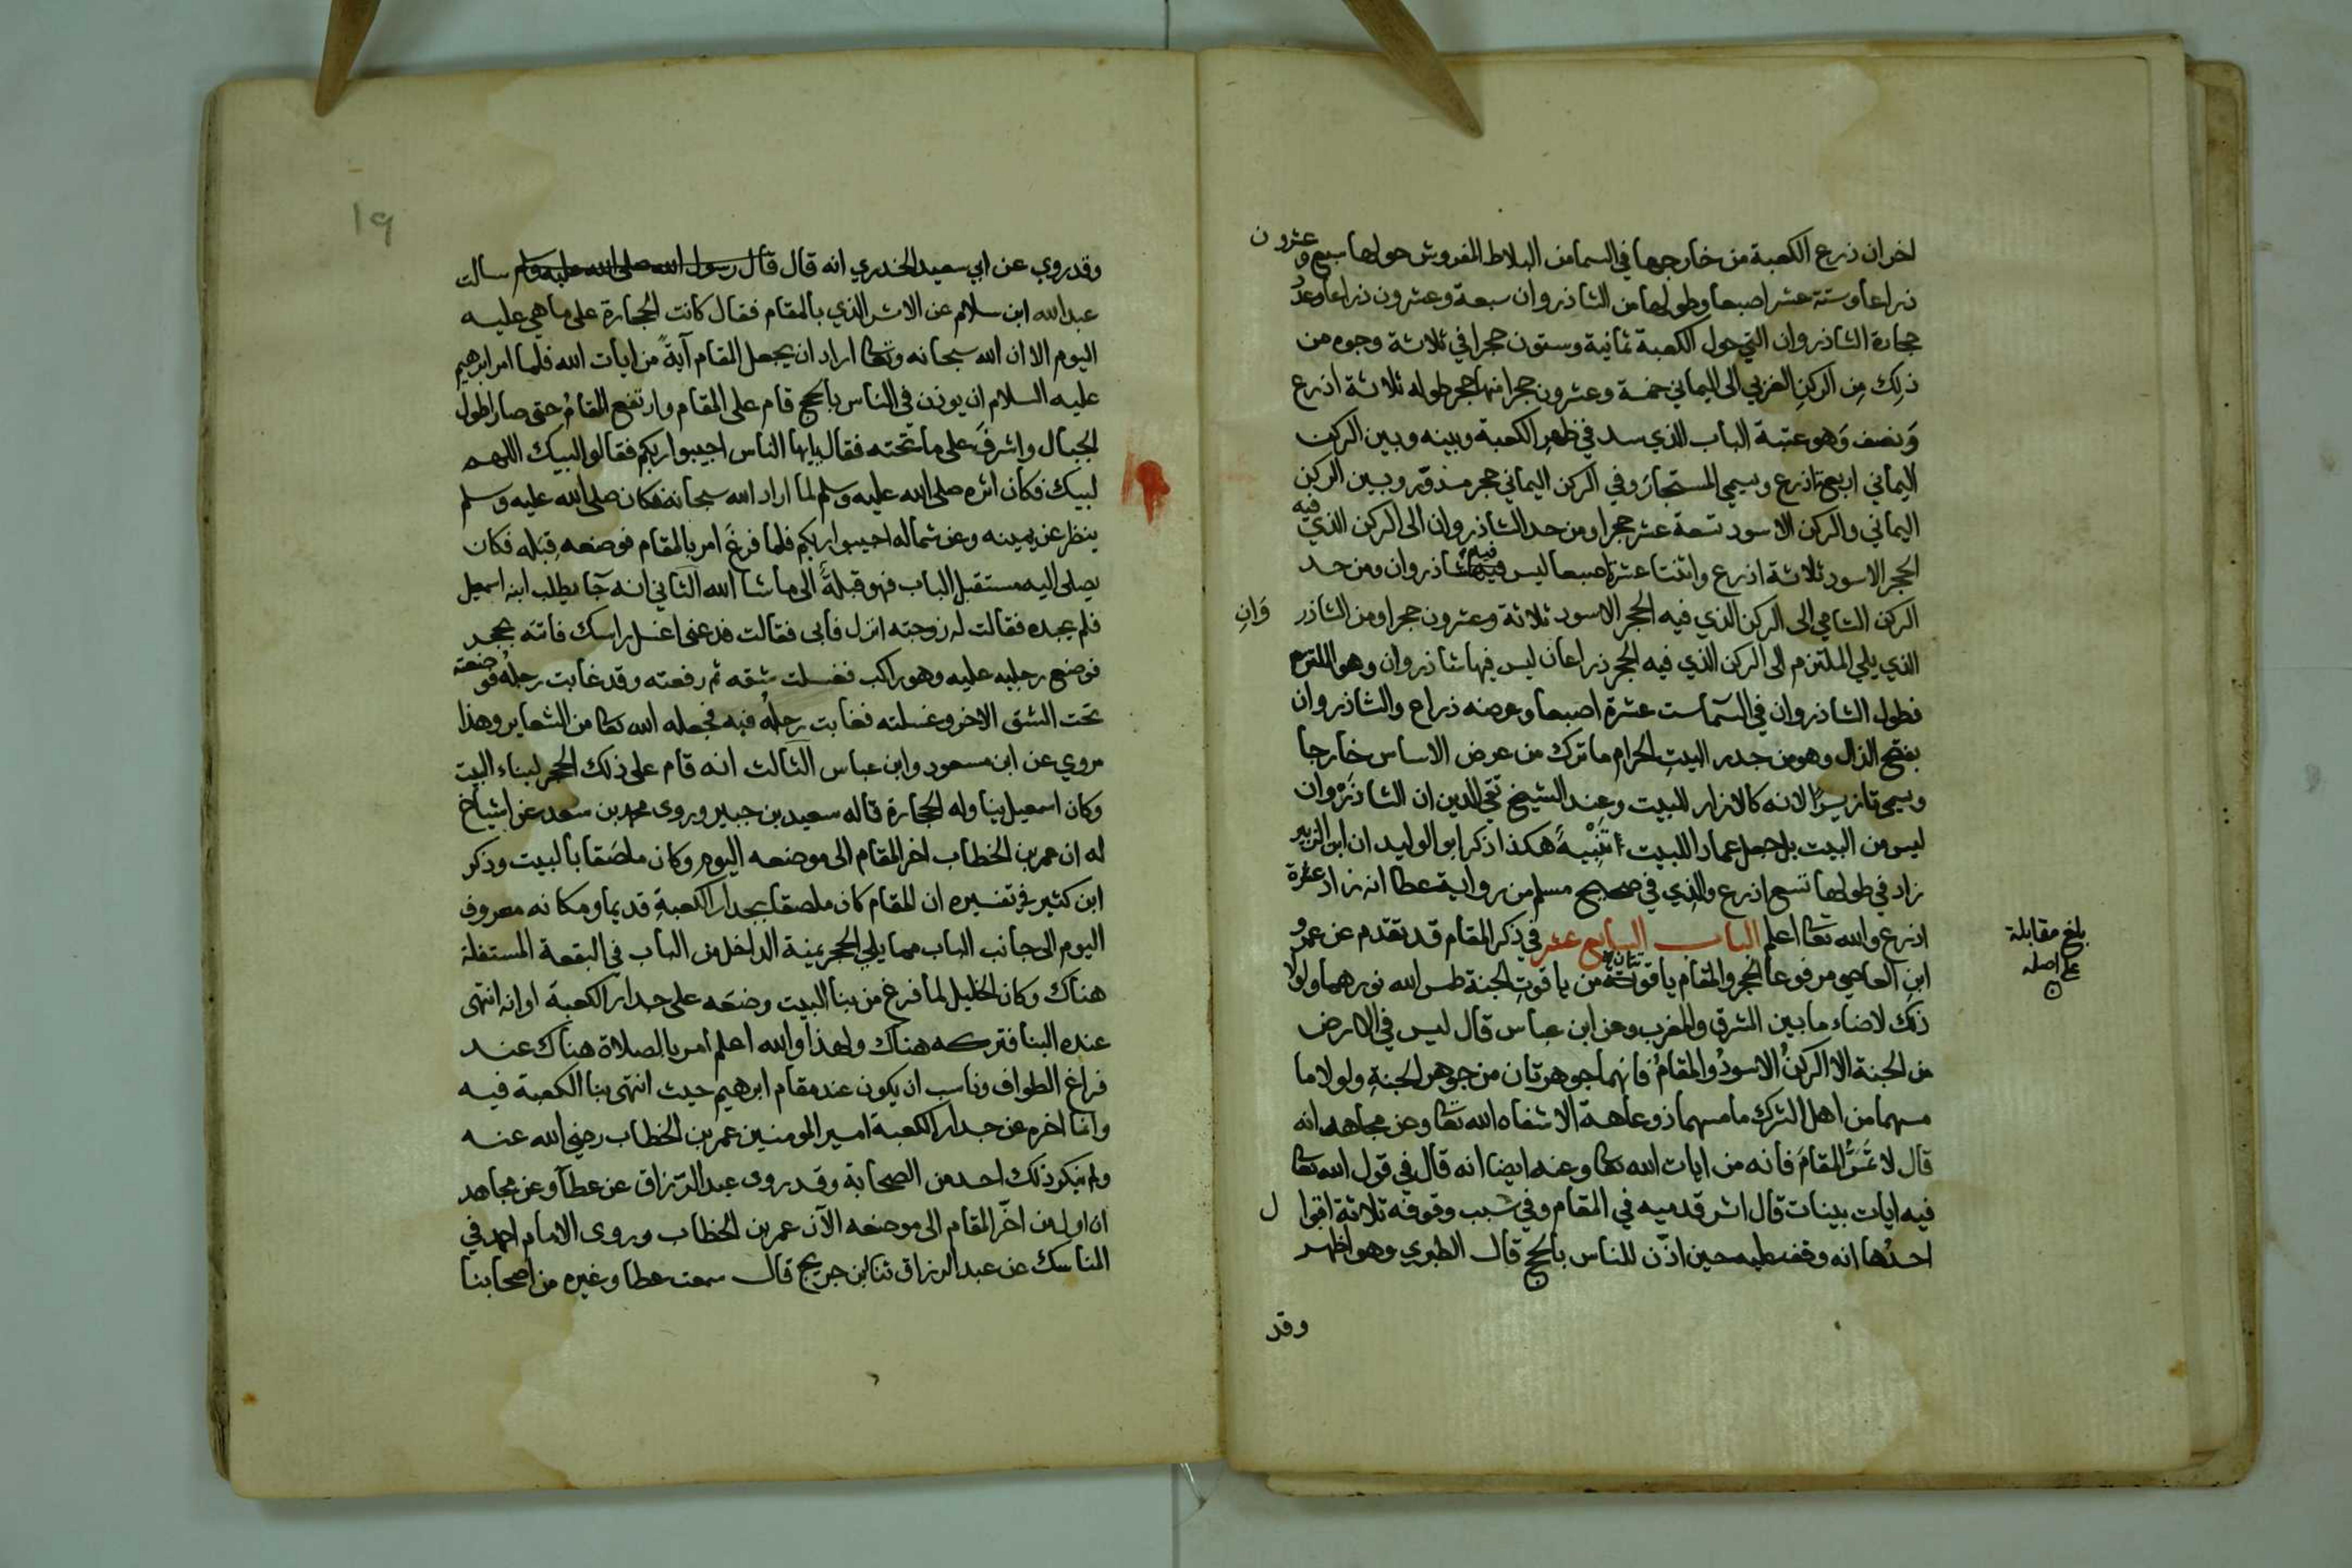 اخر ان ذرع الكعبة من خارجها في السما من البلاط المفروش حولها سبع وعشرون
ذراعا وستة عشر اصبعا وطولها من الشاذروان سبعة وعشرون ذراعا وعدد
حجارة الشاذروان التي حول الكعبة ثمانية وستون حجرا في ثلاثة وجوه من
ذلك مِن الركنِ الغربي الى اليماني خمسة وعشرون حجرا منها حجر طوله ثلاثة اذرع
وَنصف وَهو عتبة الباب الذي سد في ظهر الكعبة وبينه وبين الركن
اليماني اربع اذرع ويسمى المستجار وفي الركن اليماني حجر مدوّر وبين الركن
اليماني والركن الاسود تسعة عشر حجرا ومن حد الشاذروان الى الركن الذي فيه
الحجر الاسود ثلاثة اذرع واثنتا عشرة اصبعا ليس فيه شاذروان ومن حد
الركن الشامي الى الركن الذي فيه الحجر الاسود ثلاثة وعشرون حجرا ومن الشاذر وَانِ
الذي يلي الملتزم الى الركن الذي فيه الحجر ذراعان ليس فيها شاذروان وهو الملتزم
فطول الشاذروان في السَّما ست عشرة اصبعا وعرضه ذراع والشاذروان
بفتح الذال وهو من جدر البيتِ الحرام ما ترك من عرض الاساس خارجا
ويسمى تازيرًا لانه كالازار للبيت وعند الشيخ تقي الدين ان الشاذَرْوان
ليس من البيت بل جعل عمادا للبيت تَنْبِيهٌ هكذا ذكر ابو الوليد ان ابن الزبير
زاد في طولها تسع اذرع والذي في صحيح مسلم من رواية عطا انه زاد عشرة
اذرع والله تعا اعلم الباب السابع عشر في ذكر المقام قد تقدم عن عمرو
ابن العاصي مرفوعا الحجر والمقام ياقوتتان من ياقوتِ الجنة طمس الله نورهما ولولا
ذلك لاضاء ما بين المشرق والمغرب وعن ابن عباس قال ليس في الارض
من الجنة الا الركنُ الاسودُ والمقامُ فانهما جوهرتان من جوهر الجنةِ ولولا ما
مسهما من اهل الشرك ما مسهما ذو عاهة الا شفاه الله تعا وعن مجاهد انه
قال لا تَمَسَّ المقامَ فانه من ايات الله تعا وعنه ايضا انه قال في قول الله تعا
فيه ايات بينات قال اثر قدميه في المقام وفي سبب وقوفه ثلاثة اقوا ل
احدُها انه وقف عليه حين اذّن للناس بالحج قال الطبري وهو اظهر
وقد
بلغ مقابلة
على اصله
١٩
وقد روي عن ابي سعيد الخدري انه قال قال رسول الله صلى الله عليه وسلم سالت
عبد الله ابن سلام عن الاثر الذي بالمقام فقال كانت الحجارة على ما هي عليه
اليوم الا ان الله سبحانه وتعا اراد ان يجعل المقام آيةً من ايات الله فلما امر ابرهيم
عليه السلام ان يوذن في الناس بالحج قام على المقام وارتفع المقامُ حتى صار اطول
الجبال واشرفَ على ما تحته فقال يايها الناس اجيبوا ربكم فقالوا لبيك اللهم
لبيك فكان اثره صلى الله عليه وسلم لما اراد الله سبحانه فكان صلى الله عليه وسلم
ينظر عن يمينه وعن شماله اجيبوا ربكم فلما فرغَ امر بالمقام فوضعه قِبَله فكان
يصلي اليه مستقبل الباب فهو قبلةً الى ما شا الله الثاني انه جَا يطلب ابنه اسمعيل
فلم يجده فقالت له زوجته انزل فابى فقالت فدعني اغسل راسك فاتته بحجر
فوضع رجليه عليه وهو راكب فغسلت شقه ثم رفعته وقد غابت رجلهُ فوضعته
تحت الشق الاخر وغسلته فغابت رجلُه فيه فجعله الله تعا من الشعاير وهذا
مروي عن ابن مسعود وابن عباس الثالث انه قام على ذلك الحجر لبناء البيت
وكان اسمعيل يناوله الحجارة قاله سعيد بن جبير وروى محمد بن سعد عن اشياخ
له ان عمر بن الخطاب اخر المقام الى موضعه اليوم وكان ملصَقا بالبيت وذكر
ابن كثير في تفسيره ان المقام كان ملصقا بجدار الكعبةِ قديما ومكانه معروف
اليوم الى جانب الباب مما يلي الحجر يمنية الداخل من الباب في البقعة المستقلة
هناك وكان الخليل لما فرغ من بنا البيت وضعَه على جدار الكعبة او انه انتهى
عنده البنا فتركه هناك ولهذا والله اعلم امر بالصلاة هناك عند
فراغ الطواف وناسب ان يكون عند مقام ابرهيم حيث انتهى بنا الكعبة فيه
وانما اخره عن جدار الكعبة امير المومنين عمر بن الخطاب رضي الله عنه
ولم ينكر ذلك احد من الصحابة وقد روى عبد الرّزاق عن عطآ وعن مجاهد
ان اول من اخّر المقام الى موضعه الآن عمر بن الخطاب وروى الامام احمد في
المناسك عن عبد الرزاق ثنا ابن جريج قال سمعت عطا وغيره من اصحابنا